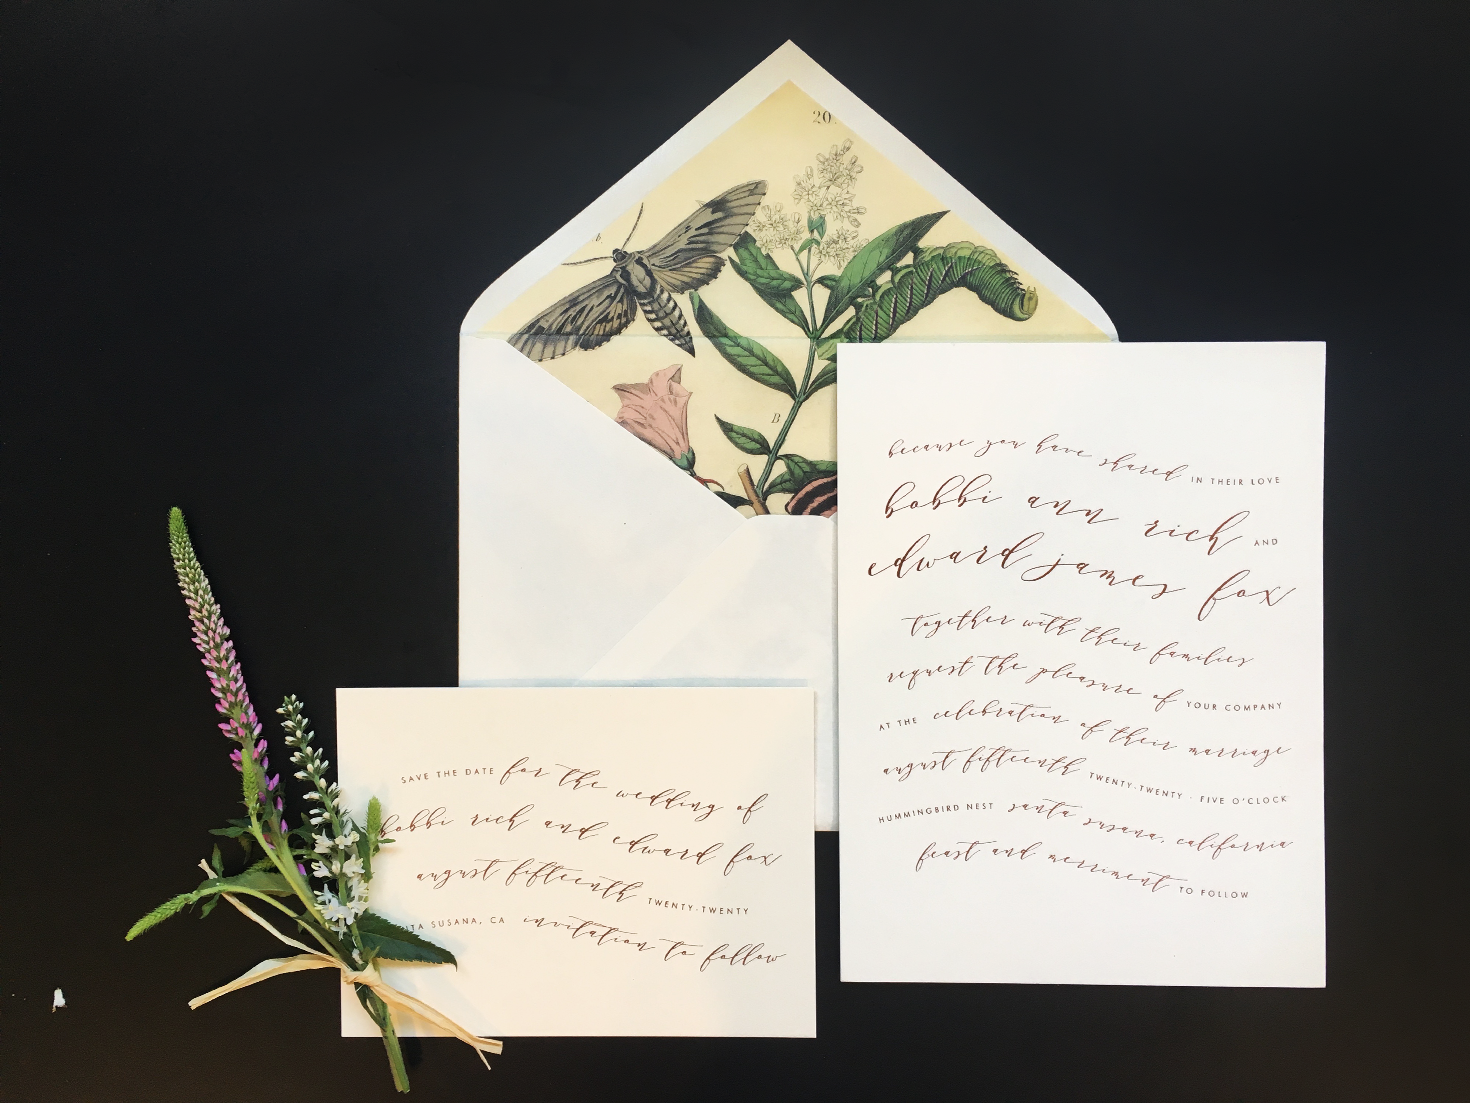 20
b
B
because you have shared IN THEIR LOVE
bobbi ann rich AND
edward james fox
together with their families
request the pleasure of YOUR COMPANY
AT THE celebration of their marriage
august fifteenth TWENTY-TWENTY · FIVE O'CLOCK
HUMMINGBIRD NEST santa susana, california
feast and merriment TO FOLLOW
SAVE THE DATE for the wedding of
bobbi rich and edward fox
august fifteenth TWENTY-TWENTY
SUSANA, CA invitation to follow